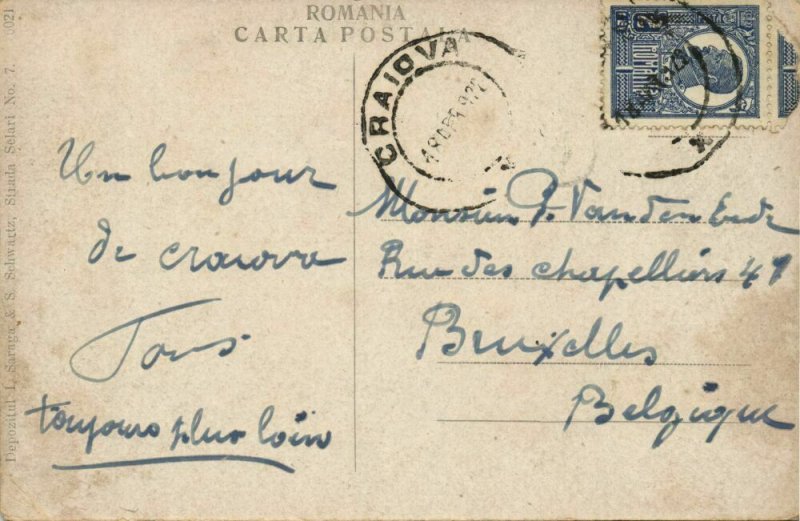 ROMANIA
CARTA POSTALA
CRAIOVA
Un bonjour
de craiova
toujours plus loin
Monsieur P. Van den Ende
Rue des chapeliers 41
Bruxelles
Belgique
Depozitul I. Saraga, & S. Schwartz, Strada Selari No. 7. 0021